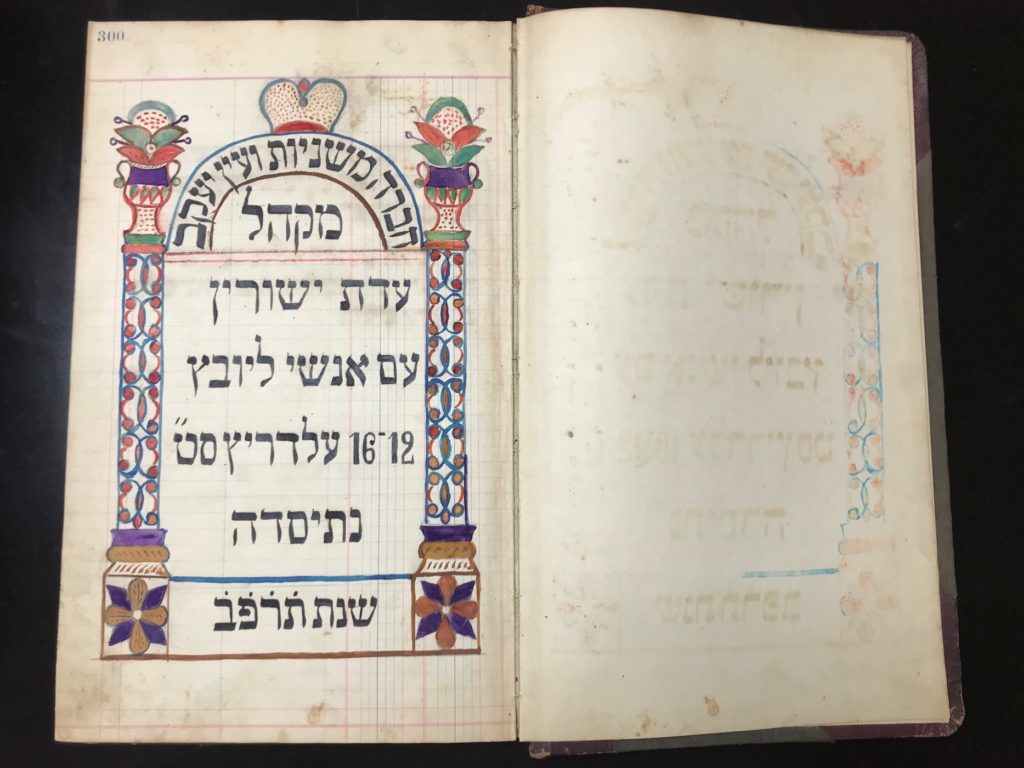 300
חברה משניות ועין יעקב
מקהל
עדת ישורין
עם אנשי ליובץ
12-16 עלדריץ סט״
נתיסדה
שנת תרפב